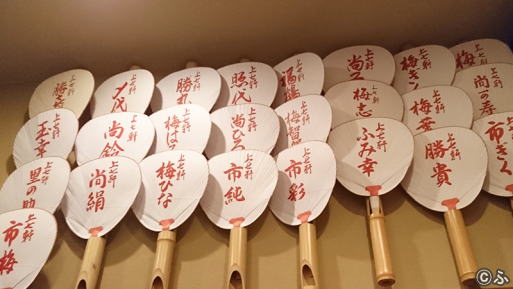 上七軒 勝奈
上七軒 夕代
上七軒 勝丸
上七軒 照代
上七軒 尚子
上七軒 梅志
上七軒 梅葉
上七軒 尚の寿
上七軒 玉幸
上七軒 尚鈴
上七軒 梅はな
上七軒 尚ひろ
上七軒 梅賀
上七軒 ふみ幸
上七軒 勝貴
上七軒 市きく
上七軒 里の助
上七軒 尚絹
上七軒 梅ひな
上七軒 市純
上七軒 市彩
上七軒 市梅
©ふ